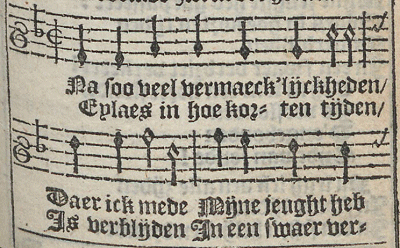 Na soo veel vermaeck'lijckheden/
Eylaes in hoe kor⸗ ten tijden/
Daer ick mede Mijne jeught heb
Is verblijden In een swaer ver⸗